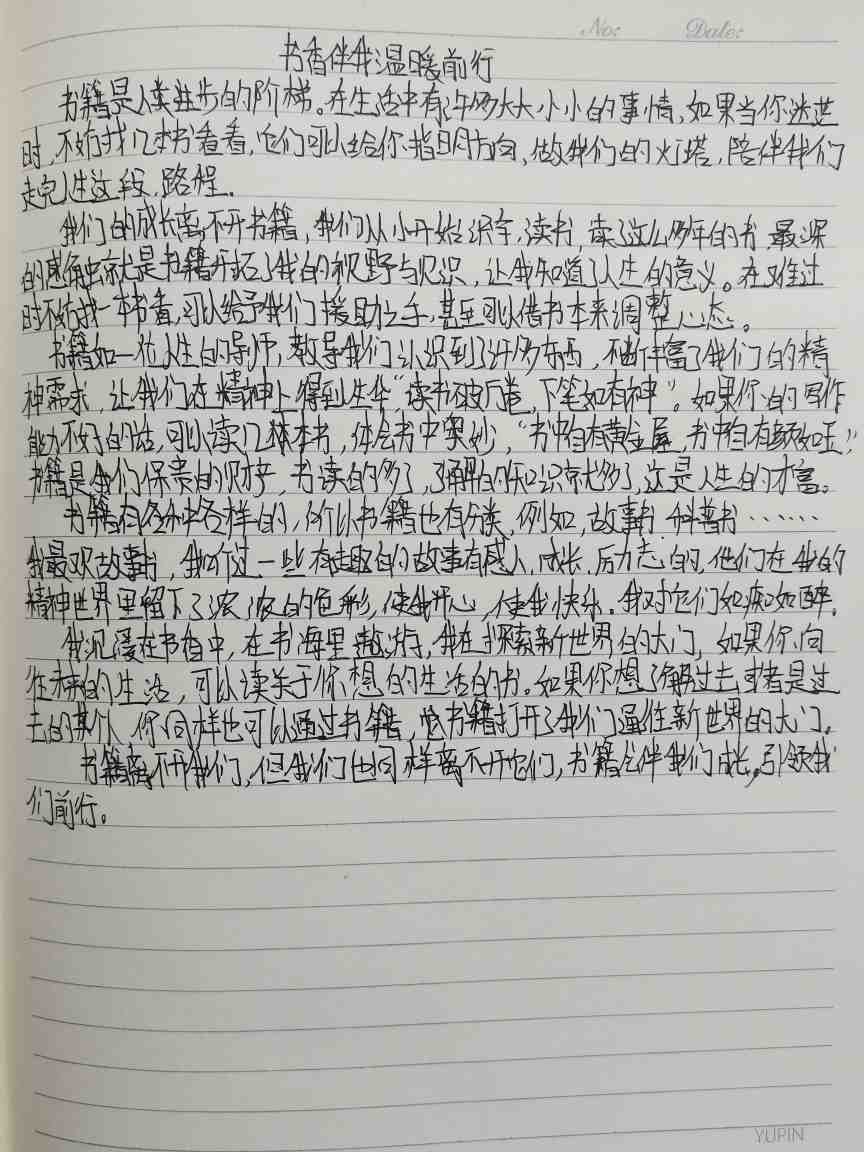 No: Date:
书香伴我温暖前行
书籍是人类进步的阶梯。在生活中有许多大大小小的事情,如果当你迷茫
时,不妨找几本书看看,它们可以给你指明方向,做我们的灯塔,陪伴我们
走完人生这段路程.
我们的成长离不开书籍,我们从小开始识字,读书,读了这么多年的书 最深
的感触就是书籍开拓了我的视野与见识,让我知道了人生的意义。在难过
时不妨找一本书看,可以给予我们援助之手,甚至可以借书本来调整心态。
书籍如一位人生的导师,教导我们认识到了许多东西,不断丰富了我们的精
神需求,让我们在精神上得到升华“读书破万卷,下笔如有神”。如果你的写作
能力不好的话,可以读几本书,体会书中奥妙,“书中自有黄金屋,书中自有颜如玉”
书籍是我们保贵的财产,书读的多了,了解的知识就多了,这是人生的财富。
书籍有各种各样的,所以书籍也有分类,例如,故事书 科普书……
我最欢故事书,我听过一些有趣的故事有感人,成长,励志的,他们在我的
精神世界里留下了浓浓的色彩,使我开心,使我快乐.我对它们如痴如醉.
我沉浸在书香中,在书海里遨游,我在探索新世界的大门,如果你向
往未来的生活,可以读关于你想的生活的书。如果你想了解过去或者是过
去的某个人 你同样也可以通过书籍,是书籍打开了我们通往新世界的大门。
书籍离不开我们,但我们也同样离不开它们,书籍会伴我们成长,引领我
们前行。
YUPIN